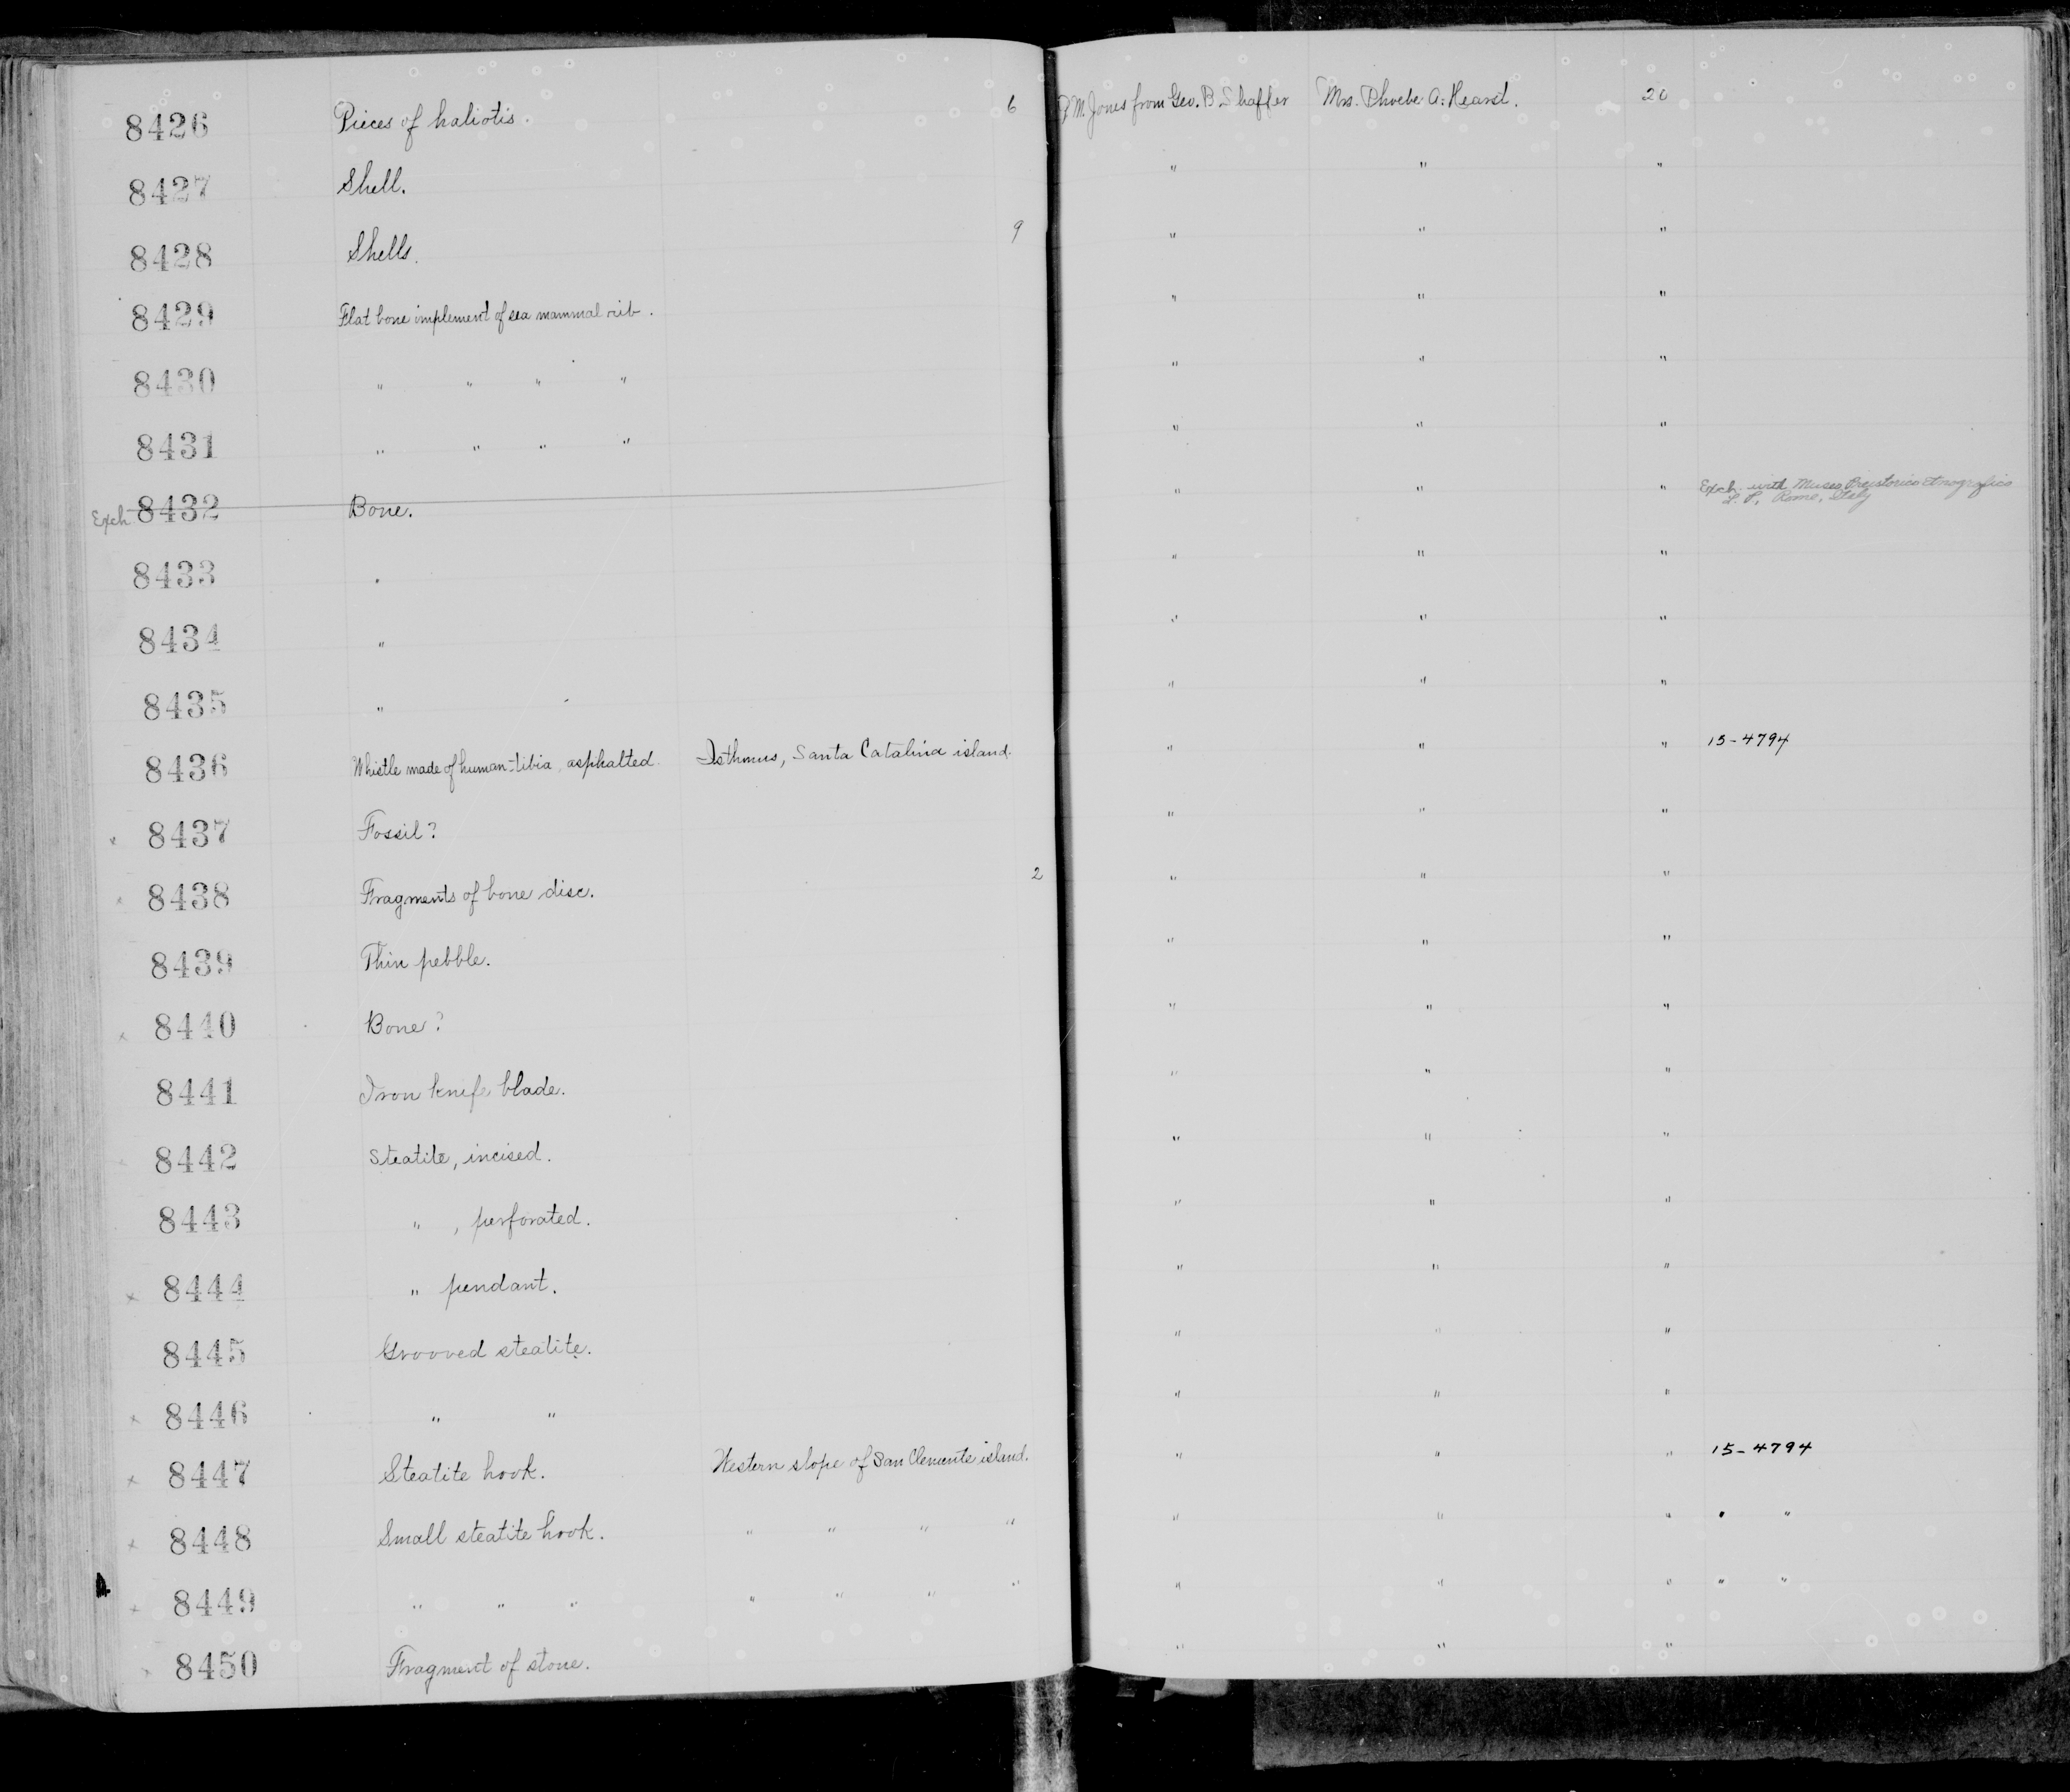 8426 Pieces of haliotis. 6 P. M. Jones from Geo. B. Shaffer Mrs. Phoebe A. Hearst. 20
8427 Shell. " " "
8428 Shells. 9 " " "
8429 Flat bone implement of sea mammal rib. " " "
8430 " " " " " " "
8431 " " " " " " "
Exch 8432 Bone. " " " Exch. with Museo Preistorico Etnografico
L. P., Rome, Italy
8433 " " " "
8434 " " " "
8435 " " " "
8436 Whistle made of human-tibia, asphalted. Isthmus, Santa Catalina island. " " " 15-4794
x 8437 Fossil? " " "
x 8438 Fragments of bone disc. 2 " " "
8439 Thin pebble. " " "
x 8440 Bone? " " "
8441 Iron knife blade. " " "
8442 Steatite, incised. " " "
8443 " , perforated. " " "
x 8444 " pendant. " " "
8445 Grooved steatite. " " "
x 8446 " " " " "
x 8447 Steatite hook. Western slope of San Clemente island. " " " 15-4794
x 8448 Small steatite hook. " " " " " " " " "
x 8449 " " " " " " " " " " " "
x 8450 Fragment of stone. " " "